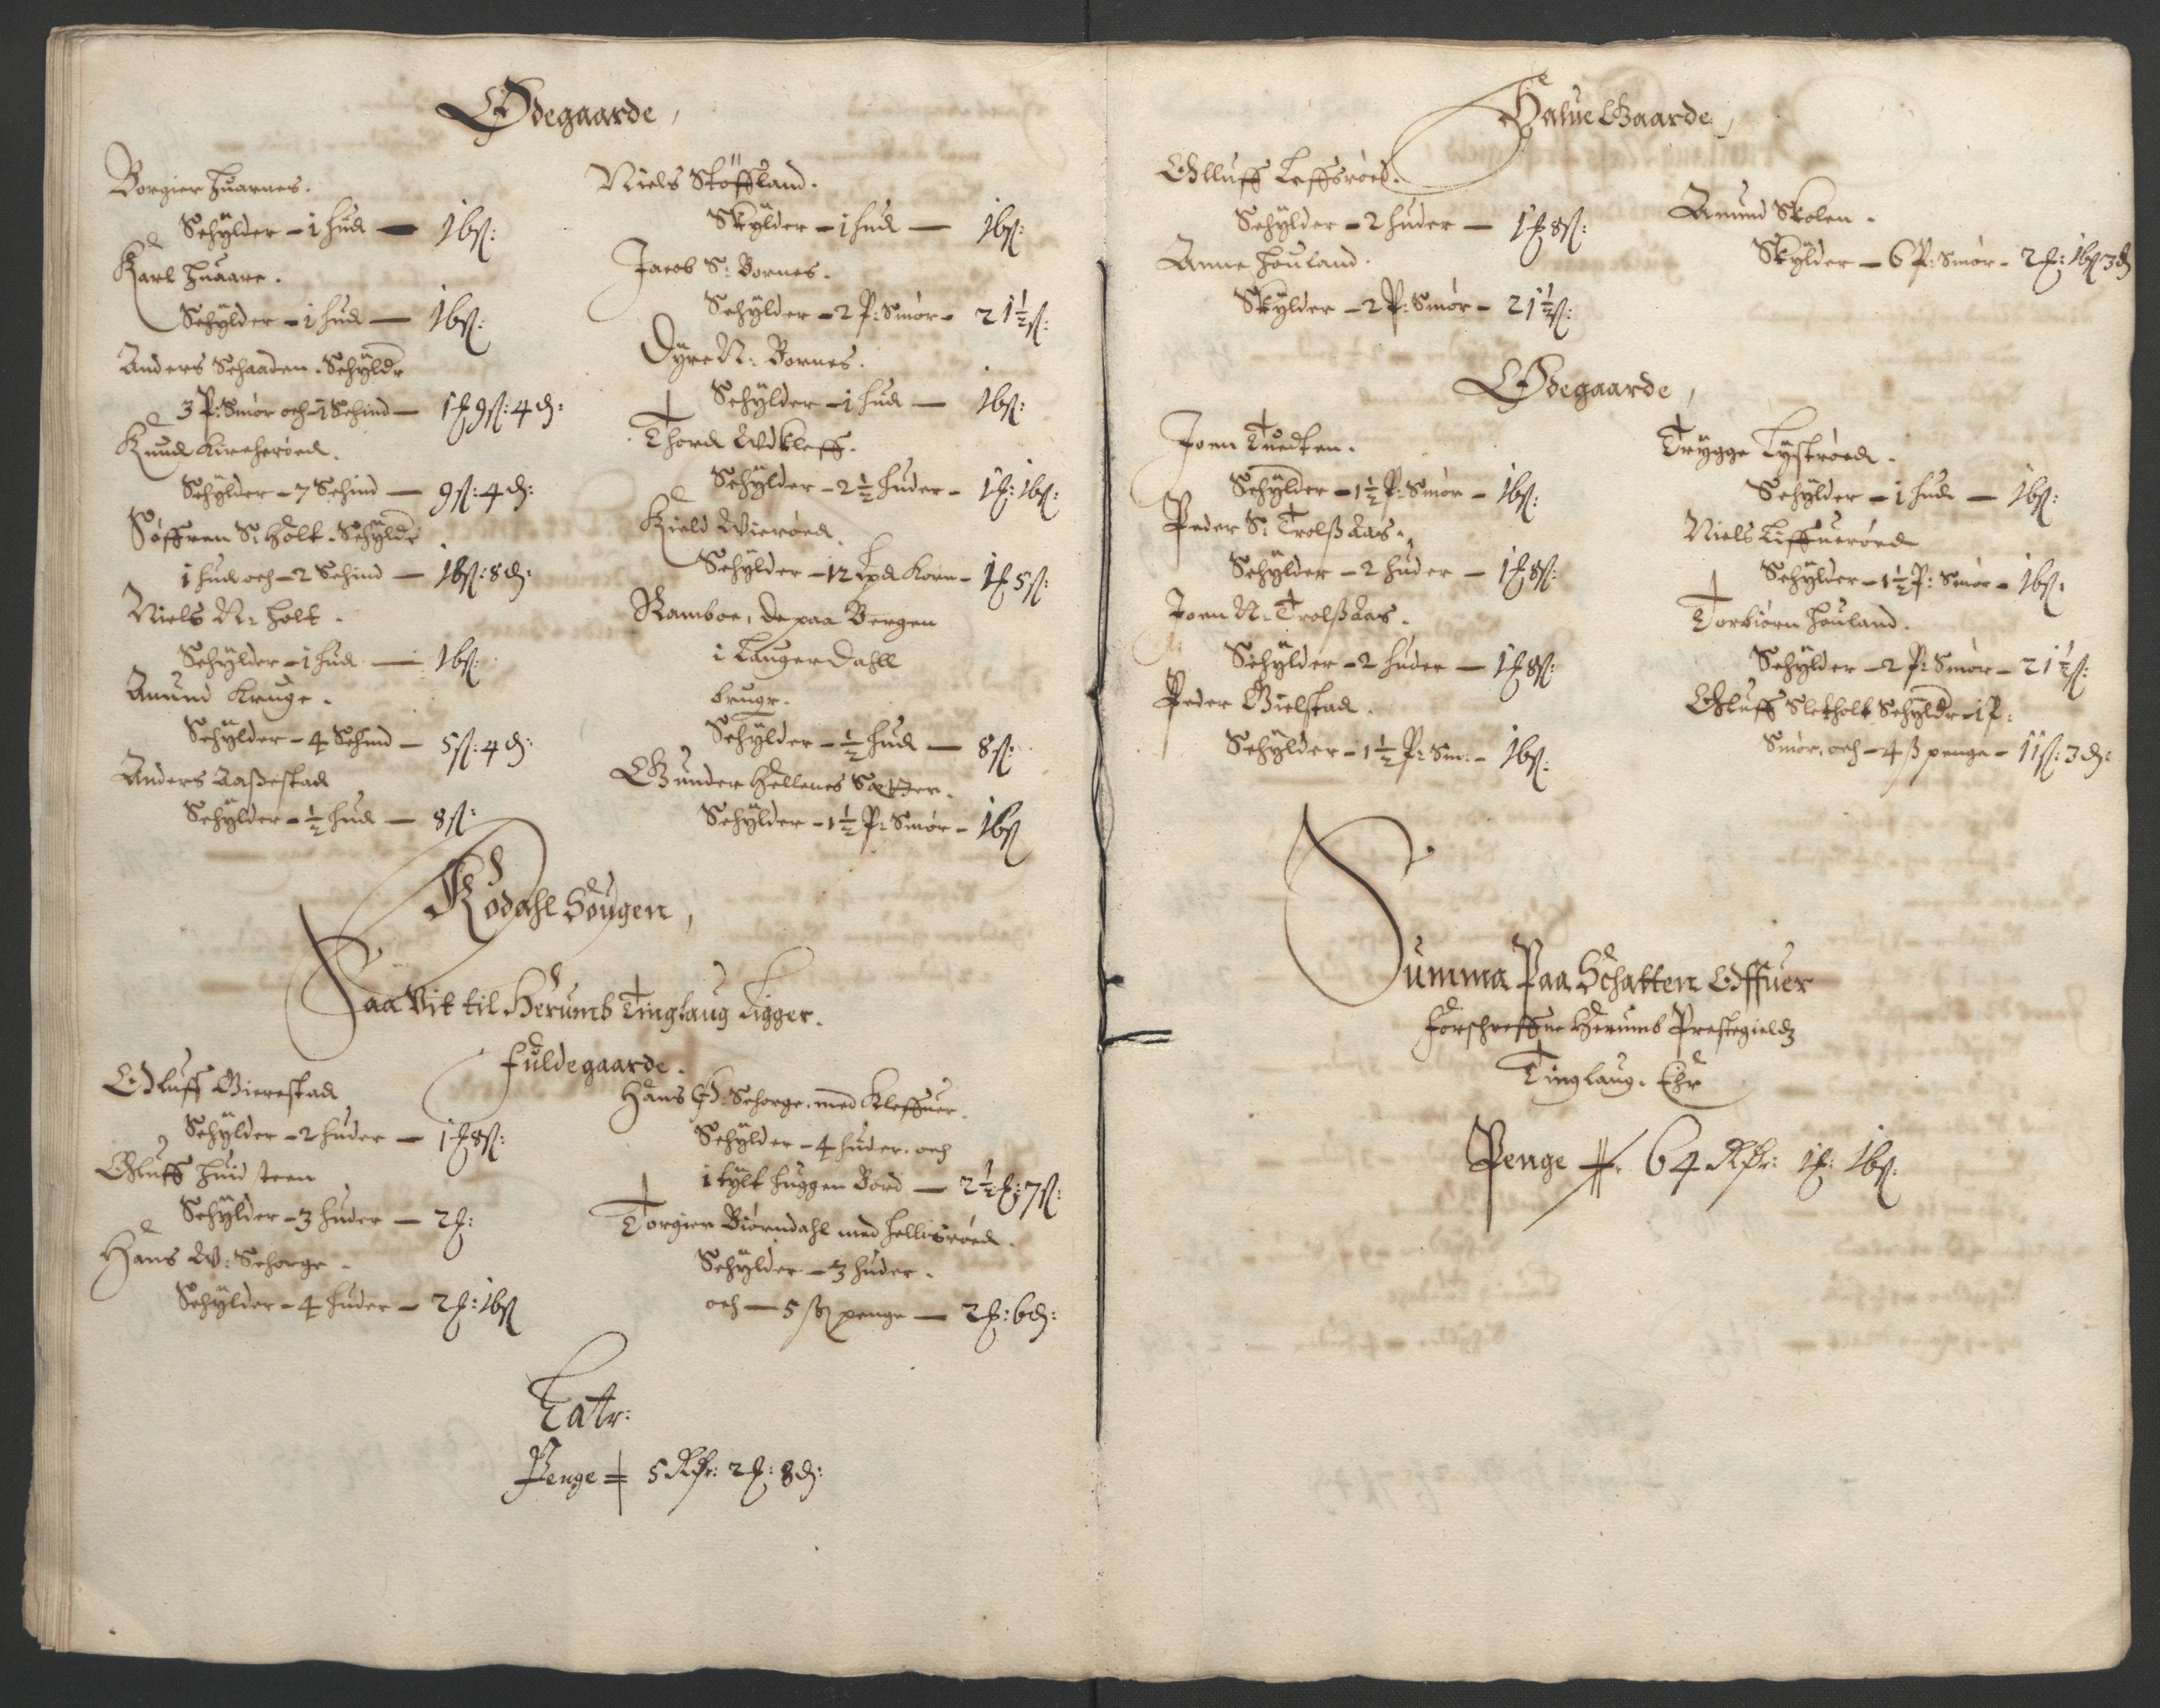 Ødegaarde,
Borgier Huarnes.
Schÿlder - 1 Hud - 16 ß:
Karl Huaare.
Schÿlder - 1 Hud - 16 ß:
Anders Schaaden. Schÿldr
3 P: Smör och - 1 Schind - 1 f 9 ß: 4 d:
Knud Kircheröed.
Schÿlder - 7 Schind - 9 ß: 4 d:
Söffren S: Holt. Schÿldr
1 Hud och - 2 Schind - 18 ß: 8 d:
Niels N: Holt.
Schÿlder - 1 Hud - 16 ß:
Amund Kruge.
Schÿlder - 4 Schind - 5 ß: 4 d:
Anders Aaßestad
Schÿlder - ½ Hud - 8 ß:
Niels Stöffland.
Skÿlder - 1 Hud - 16 ß:
Jacob S: Bornes.
Schÿlder - 2 P: Smör - 21½ ß:
Dÿre N: Bornes.
Schÿlder - 1 Hud - 16 ß:
Thord Wdkleff.
Schÿlder - 2½ Huder - 1 f: 16 ß:
Kield Wieröed.
Schÿlder - 12 Lpd Korn - 1 f 5 ß:
Ramboe, de paa Bergen
i Laugerdahll
brugr.
Schÿlder - ½ Hud - 8 ß:
Gunder Hellenes Sætter.
Schÿlder - 1½ P: Smör - 16 ß
Kodahl Sougen,
Saa Vit til Herumb Tinglaug Ligger.
Fuldegaarde.
Oluff Gierestad
Schÿlder - 2 Huder - 1 f 8 ß:
Oluff Huidsteen
Schÿlder - 3 Huder - 2 f:
Hans W: Schorge.
Schÿlder - 4 Huder - 2 f: 16 ß
Hans Ø: Schorge, med Kleffuer.
Schÿlder - 4 Huder. och
1 tÿlt Huggen Bord - 2½ f: 7 ß:
Torgier Biörndahl med Hellisröed.
Schÿlder - 3 Huder.
och - 5 ß penge - 2 f: 6 d:
Latr:
Penge 5 Rdr: 2 f: 8 d:
Halue Gaarde,
Olluff Leffsröed.
Schÿlder - 2 Huder - 1 f 8 ß:
Anne Houland.
Skÿlder - 2 P: Smör - 21½ ß:
Amund Skolen.
Skÿlder - 6 P: Smör - 2 f: 16 ß 3 d
Ødegaarde,
Joen Tuedten.
Schÿlder - 1½ P: Smör - 16 ß:
Peder S: Trolßaas.
Schÿlder - 2 Huder - 1 f 8 ß:
Joen N: Trolßaas.
Schÿlder - 2 Huder - 1 f 8 ß:
Peder Gielstad.
Schÿlder - 1½ P: Sm: - 16 ß:
Trÿgge Lÿströed.
Schÿlder - 1 Hud - 16 ß:
Niels Liffueröed
Schÿlder - 1½ P: Smör - 16 ß:
Torbiörn Houland.
Schÿlder - 2 P: Smör - 21½ ß:
Oluff Sletholt Schÿldr - 1 P:
Smör, och - 4 ß penge - 11 ß: 3 d:
Summa Paa Schatten Offuer
Forschreffne Herumb Prestegields
Tinglaug. Ehr
Penge 64 Rdr: 1 f: 16 ß: